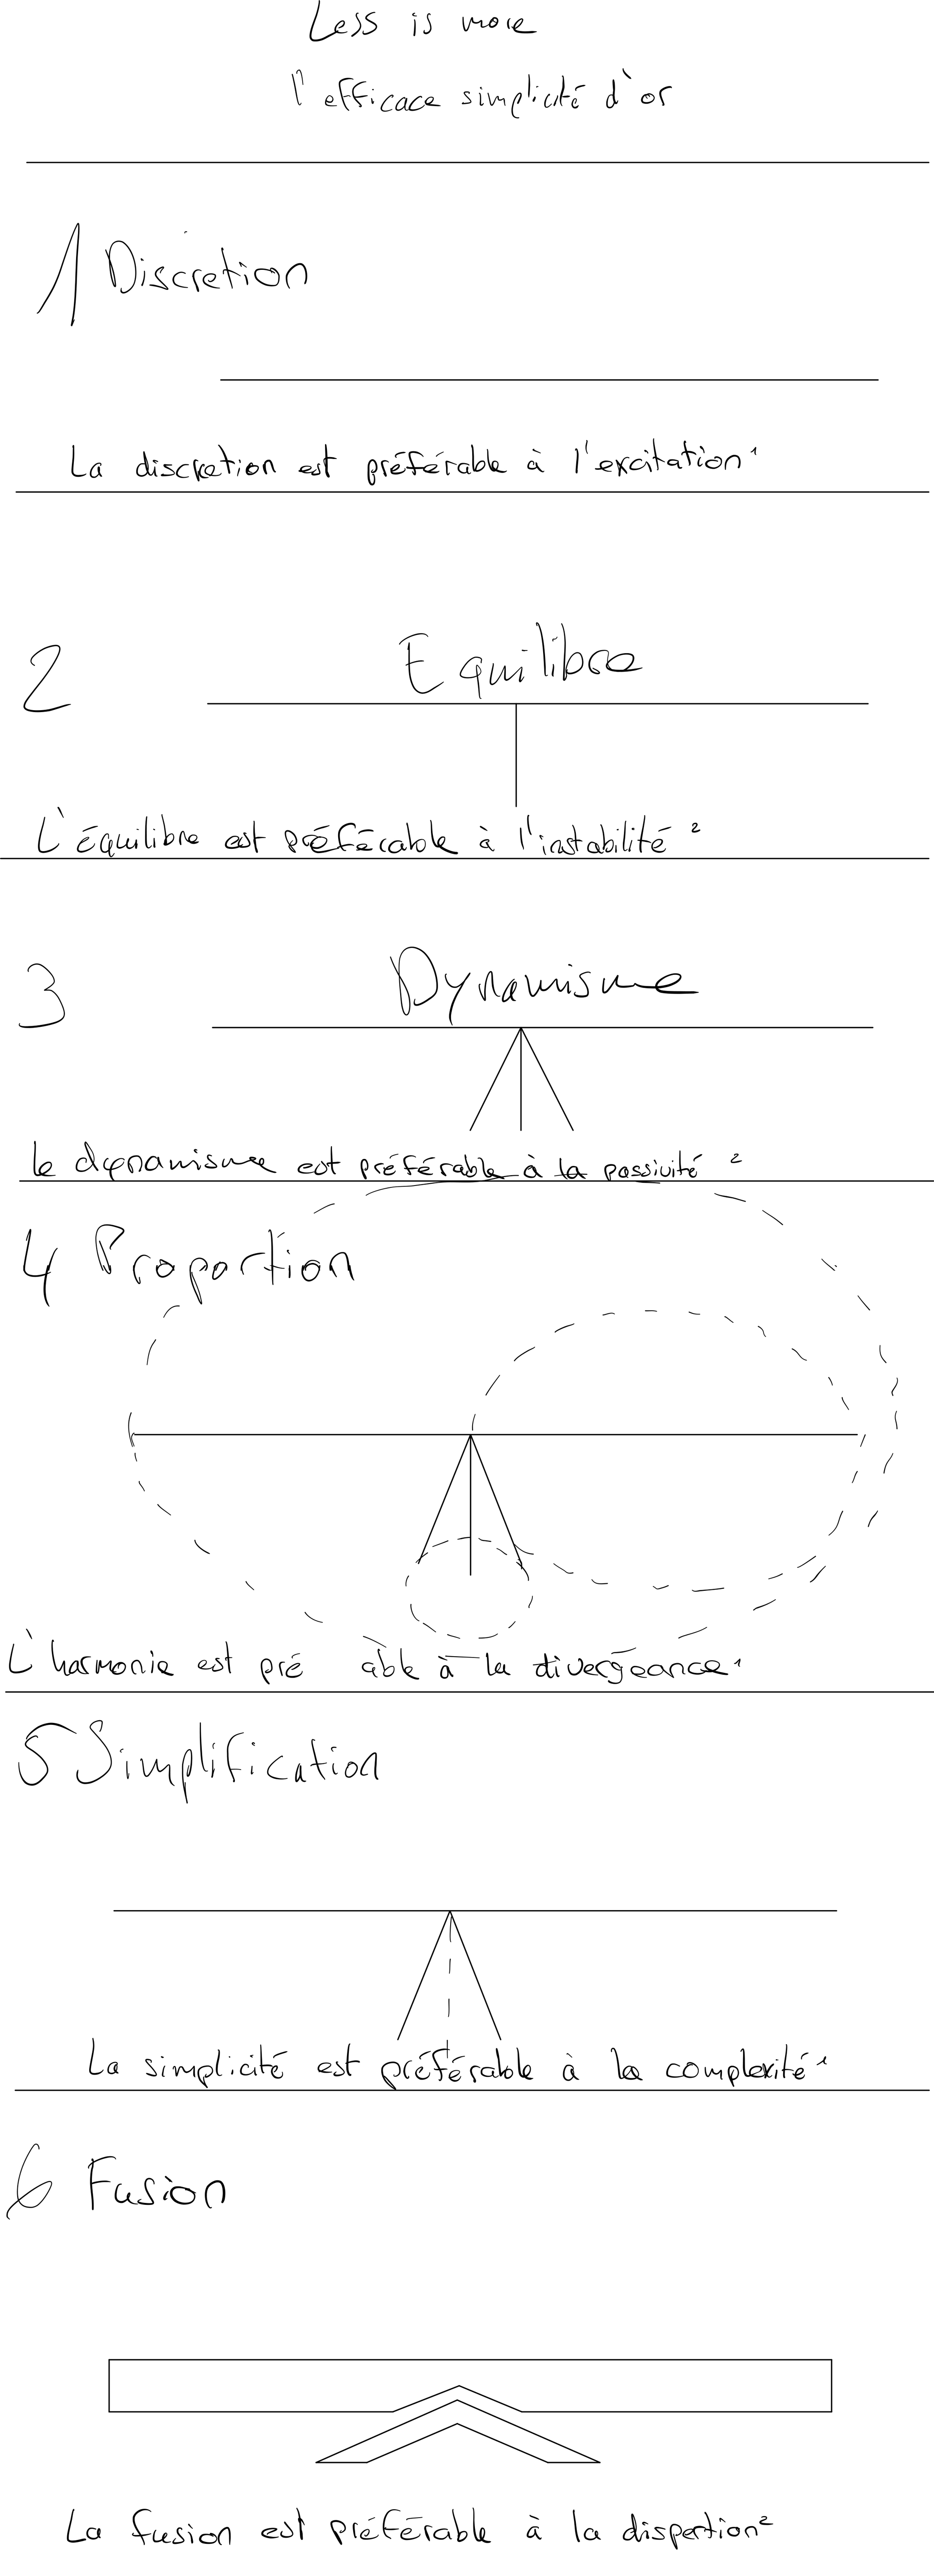 Less is more
l'efficace simplicité d'or
1 Discretion
La discretion est préférable à l'excitation¹
2 Equilibre
L'équilibre est préférable à l'instabilité ²
3 Dynamisme
le dynamisme est préférable à la passivité ²
4 Proportion
L'harmonie est pré able à la divergeance¹
5 Simplification
La simplicité est préférable à la complexité¹
6 Fusion
La fusion est préférable à la dispertion²